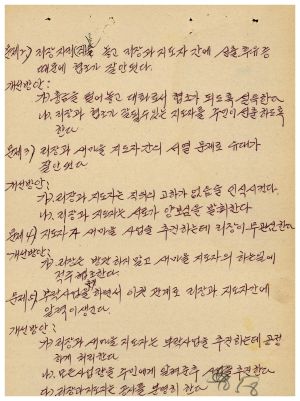 문제2) 리장 자제(리) 놓고 리장과 지도자 간에 실효무능
때문에 협조가 잘 안된다.
개선방안:
가) 흉금을 털어 놓고 대화로서 협조가 되도록 설득한다
나) 리장과 협조가 잘될수있는 지도자를 주민이 선출 하도록
한다
문제3) 리장과 새마을 지도자 간의 서열 문제로 유대가
잘안된다.
개선방안:
가) 리장과 지도자는 직위의 고하가 없음을 인식시킨다.
나) 리장과 지도자는 서로가 양보심을 발휘한다
문제4) 지도자가 새마을 사업을 추진하는데 리장이 무관심한다
개선방안:
가) 리장은 방관 하지 않고 새마을 지도자의 하는일에
적극 협조한다.
문제5) 부락사업을 하면서 이권 관계로 리장과 지도자간에
알력이 생긴다.
개선방안:
가) 리장과 새마을 지도자는 부락사업을 추진하는데 공정
하게 처리한다
나) 모든사업관을 주민에게 알려준후 사업을 추진한다.
다) 리장과 지도자는 공사를 분명히 한다